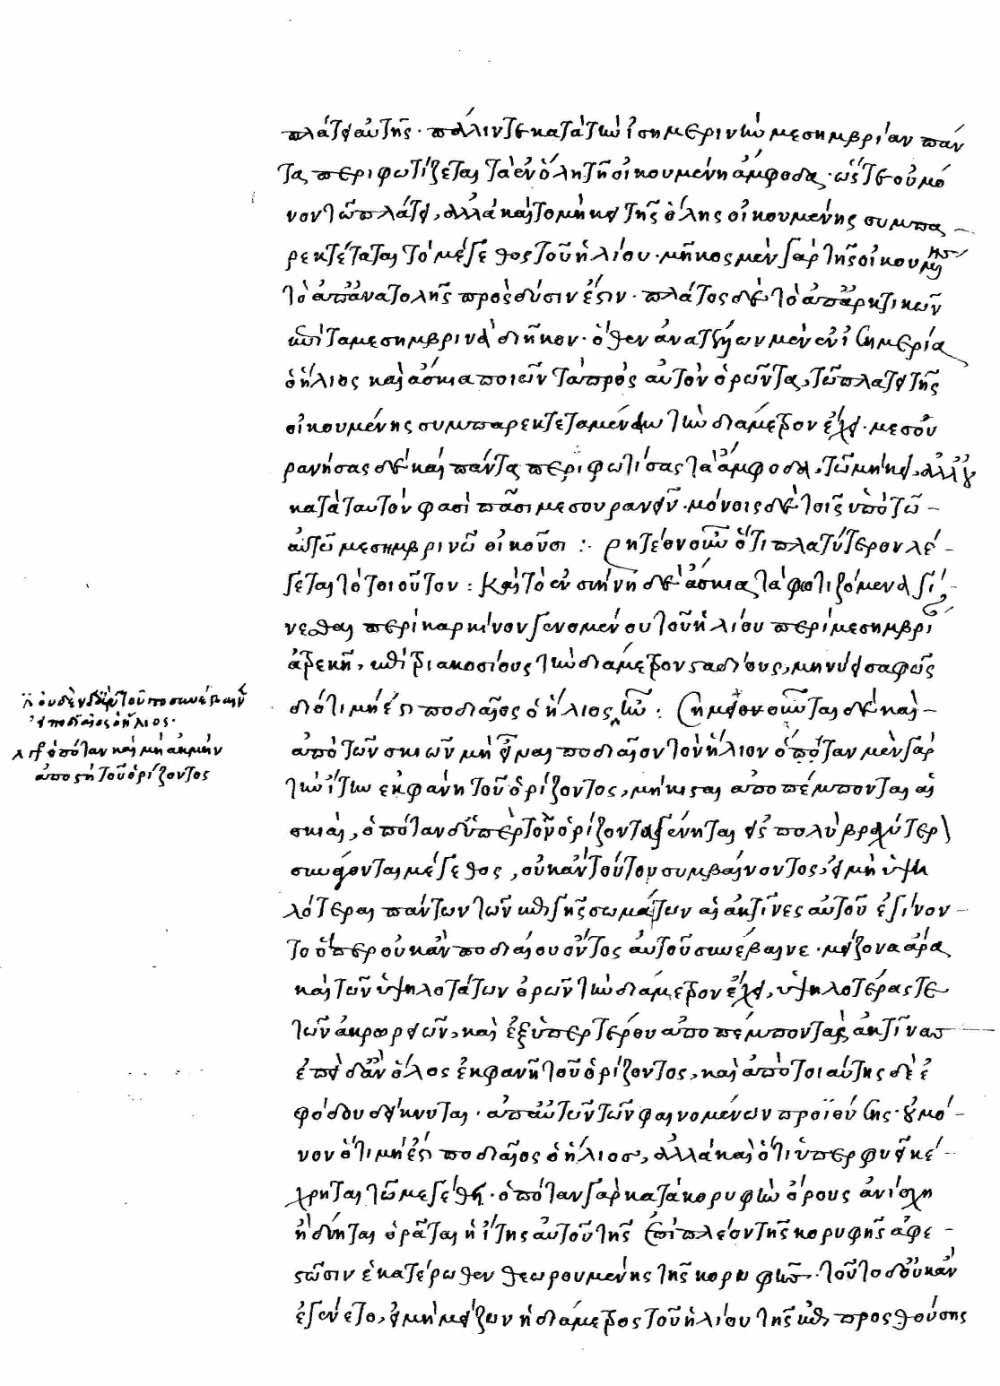 πλάτει αὐτῆς· πάλιν τε κατὰ τὴν ἰσημερινὴν μεσημβρίαν πάν
τα περιφωτίζεται τὰ ἐν ὅλη τῆ οἰκουμένη ἄμφοδα, ὥστε οὐ μό
νον τῶ πλάτει, ἀλλὰ καὶ τῶ μήκει τῆς ὅλης οἰκουμένης συμπα
ρεκτέταται τὸ μέγεθος τοῦ ἡλίου· μῆκος μὲν γὰρ τῆς οἰκουμένης
τὸ ἀπ' ἀνατολῆς πρὸς δύσιν ἐστιν· πλάτος δὲ τὸ ἀπ' ἀρκτικῶν
ἐπὶ τὰ μεσημβρινὰ διῆκον· ὅθεν ἀνατέλλων μὲν ἐν ἰσημερία
ὁ ἥλιος καὶ ἄσκια ποιῶν τὰ πρὸς αὐτὸν ὁρῶντα, τῶ πλάτει τῆς
οἰκουμένης συμπαρεκτεταμένην τὴν διάμετρον ἔχει· μεσου
ρανήσας δὲ καὶ πάντα περιφωτίσας τὰ ἄμφοδα, τῶ μήκει, ἀλλ' οὐ
κατὰ ταυτόν φασὶ πᾶσι μεσουρανεῖν· μόνοις δὲ τοῖς ὑπὸ τῶ
αὐτῶ μεσημβρινῶ οἰκοῦσι :· ῥητέον οὖν ὅτι πλατύτερον λέ
γεται τὸ τοιοῦτον : καὶ τὸ ἐν συήνη δὲ ἄσκια τὰ φωτιζόμενα γί
νεσθαι περὶ καρκίνον γενομένου τοῦ ἡλίου περὶ μεσημβρί
αν ἐπὶ τριακοσίους τὴν διάμετρον σταδίους, μηνύει σαφῶς
διότι μή ἐστι ποδιαῖος ὁ ἥλιος : σημειοῦνται δὲ καὶ
ἀπὸ τῶν σκιῶν μὴ εἶναι ποδιαῖον τὸν ἥλιον ὁπόταν μὲν γὰρ
τὴν ἴτυν ἐκφανῆ τοῦ ὁρίζοντος, μήκισται ἀποπέμπονται αἱ
σκιαί, ὁπόταν δ' ὑπὲρ τὸν ὁρίζοντα γένηται εἰς πολὺ βραχύτερ
συνάγονται μέγεθος, οὐκ ἂν τούτου συμβαίνοντος, εἰ μὴ ὑψη
λότεραι πάντων τῶν ἐπὶ γῆς σωμάτων αἱ ἀκτῖνες αὐτοῦ ἐγίνον
το ὅπερ οὐκ ἂν ποδιαίου ὄντος αὐτοῦ συνέβαινε· μείζονα ἄρα
καὶ τῶν ὑψηλοτάτων ὀρῶν τὴν διάμετρον ἔχει, ὑψηλοτέρας τε
τῶν ἀκρωρειῶν, καὶ ἐξ ὑπερτέρου ἀποπέμπονται ἀκτῖνας
ἐπειδὰν ὅλος ἐκφανῆ τοῦ ὁρίζοντος, καὶ ἀπὸ τοιαύτης δὲ ἐ
φόδου δείκνυται· ἀπ' αὐτῶν τῶν φαινομένων προϊούσης· οὐ μό
νον ὅτι μή ἐστι ποδιαῖος ὁ ἥλιος, ἀλλὰ καὶ ὅτι ὑπερφυεῖ κέ
χρηται τῶ μεγέθει· ὁπόταν γὰρ κατὰ κορυφὴν ὄρους ἀνίσχη
ἢ δύηται ὁρᾶται ἡ ἴτυς αὐτοῦ τῆς ἐπίπλέον τῆς κορυφῆς ἀφε
στῶσιν ἑκατέρωθεν θεωρουμένης τῆς κορυφῆς· τοῦτο δ' οὐκ ἂν
ἐγένετο, εἰ μὴ μείζων ἡ διάμετρος τοῦ ἡλίου τῆς ἐπιπροσθούσης
οὐδὲν γὰρ τούτου συνέβαινεν
εἰ ποδιαῖος ὁ ἥλιος·
ὁπόταν καὶ μὴ ἀκμὴν
ἀποστῆ τοῦ ὁρίζοντος